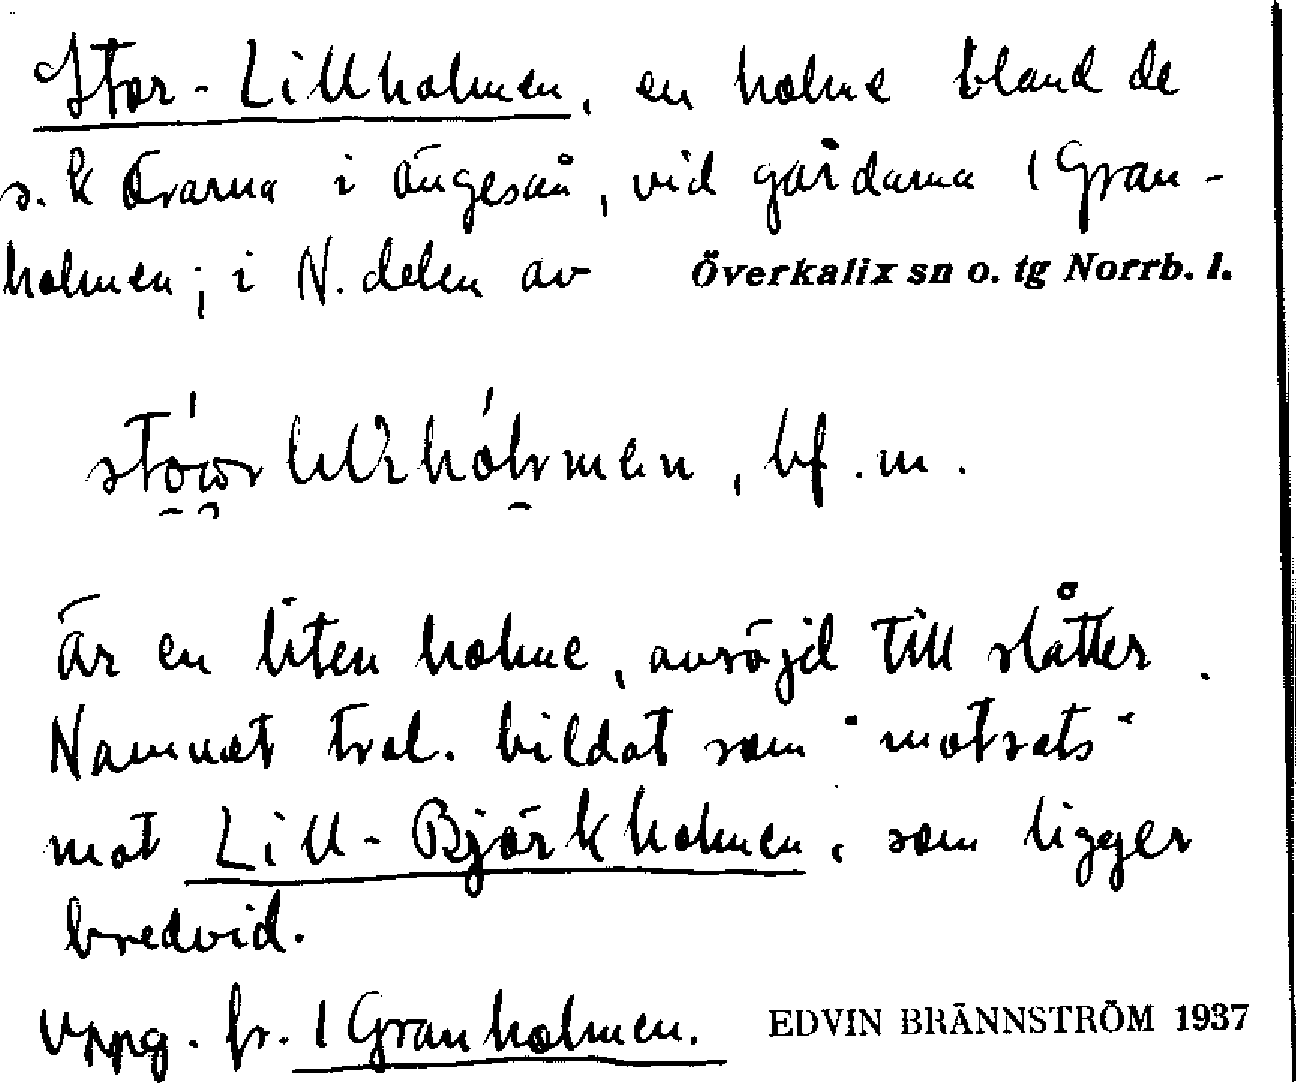 Stor-Lillholmen, en holme bland de
s.k Örarna i Ängesån, vid gårdarna 1 Gran-
holmen; i N. delen av Överkalix sn o. tg Norrb. l.
bf. m.
är en liten holme, avröjd till slåtter.
Namnet trol. bildat som "motsats"
mot Lill-Björkholmen, som ligger
bredvid.
Uppg. fr. 1 Granholmen. EDVIN BRÄNNSTRÖM 1937